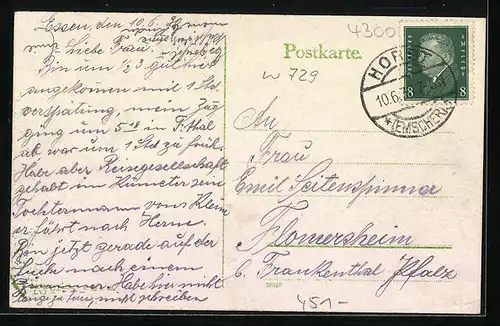 Essen, den 10.6.
liebe Frau.
Bin um ½ 3 glücklich
angekommen mit 1 Std.
verspätung, mein Zug
ging um 5 18 in F.thal
ab war um 1 Std zu früh.
Habe aber Reisegesellschaft
gehabt im
Tochtermann von Klein
er fährt nach Herne
Bin jetzt gerade auf der
Suche nach einem
Zimmer. Habe hier nicht
schreiben
Postkarte.
4300
W 729
HORST
10.6.
(EMSCHER)
8 8
An
Frau
Emil Seitenspinner
Flomersheim
b. Frankenthal Pfalz
451-